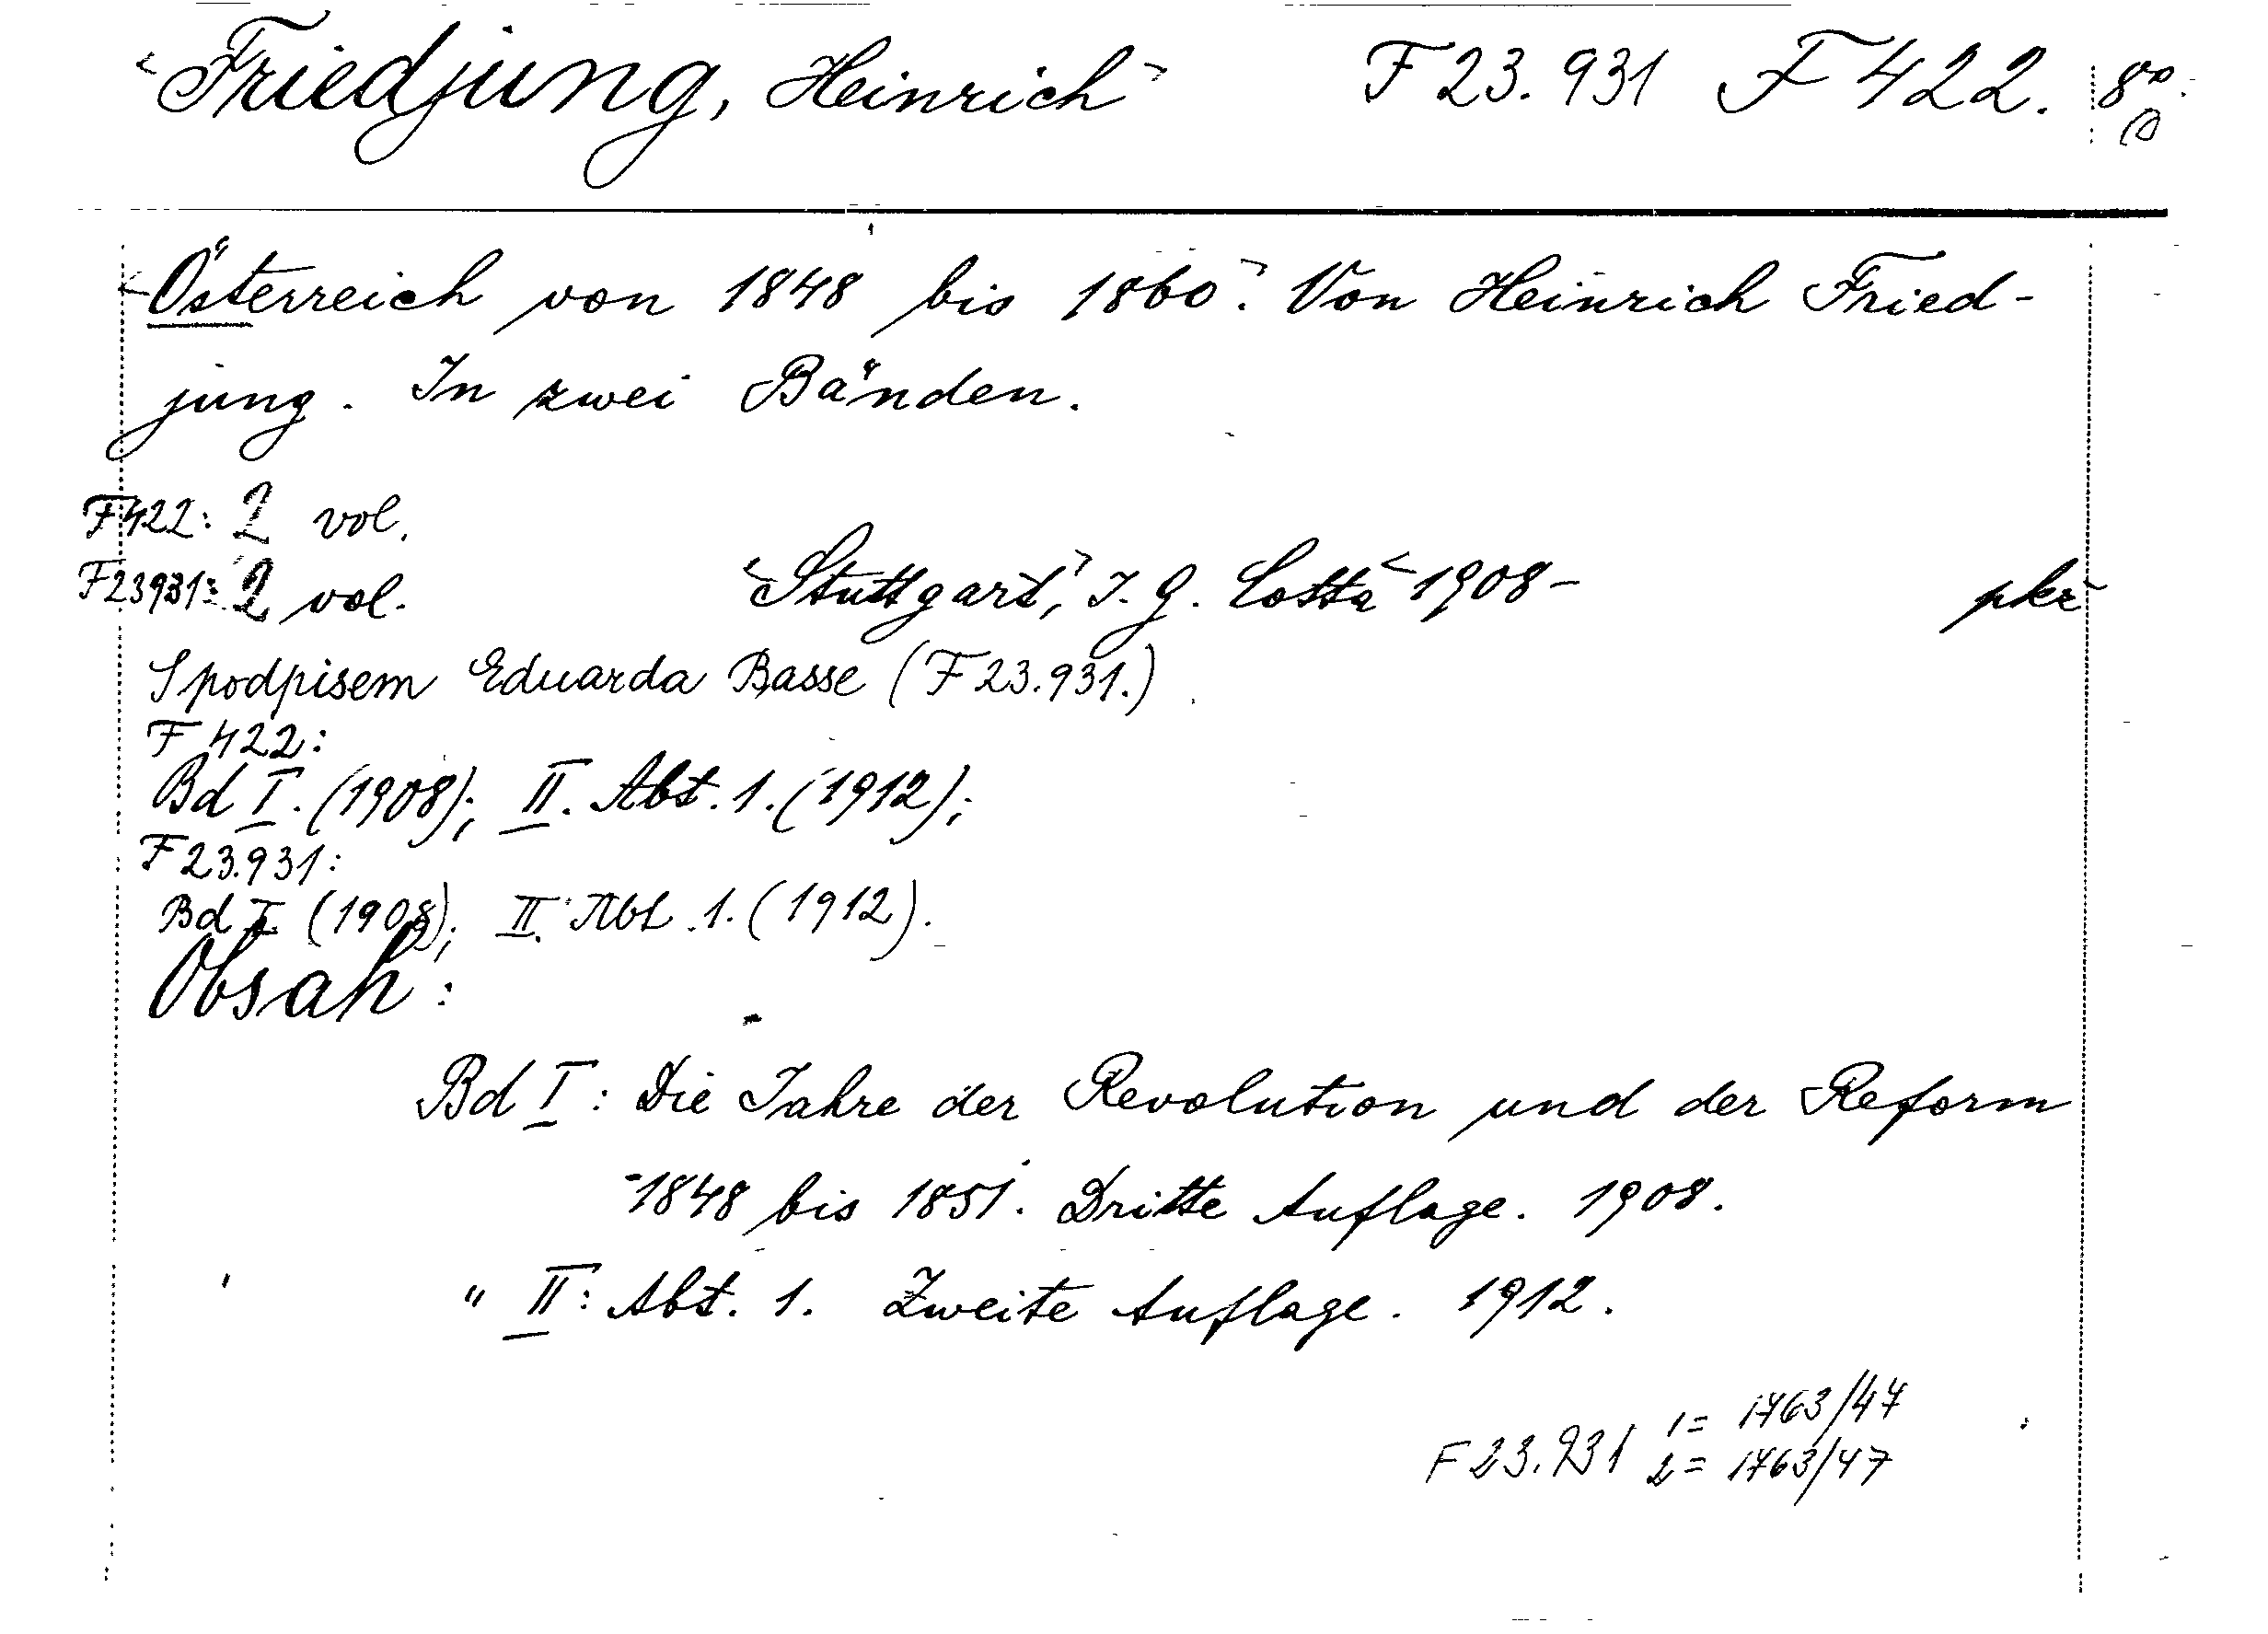 Friedjung, Heinrich F 23.931 F 422. 8°.
Österreich von 1848 bis 1860. Von Heinrich Fried-
jung. In zwei Bänden.
F422: 2 vol.
F23931: 2 vol.
Stuttgart, J. G. Cotta 1908- pkč
S podpisem Eduarda Basse (F 23.931.)
F 422:
Bd I. (1908); II. Abt. 1. (1912);
F 23.931:
Bd I. (1908); II. Abt. 1. (1912).
Obsah:
Bd I: Die Jahre der Revolution und der Reform
1848 bis 1851. Dritte Auflage. 1908.
" II: Abt. 1. Zweite Auflage. 1912.
F 23.931 1 = 1763/47
2 = 1763/47